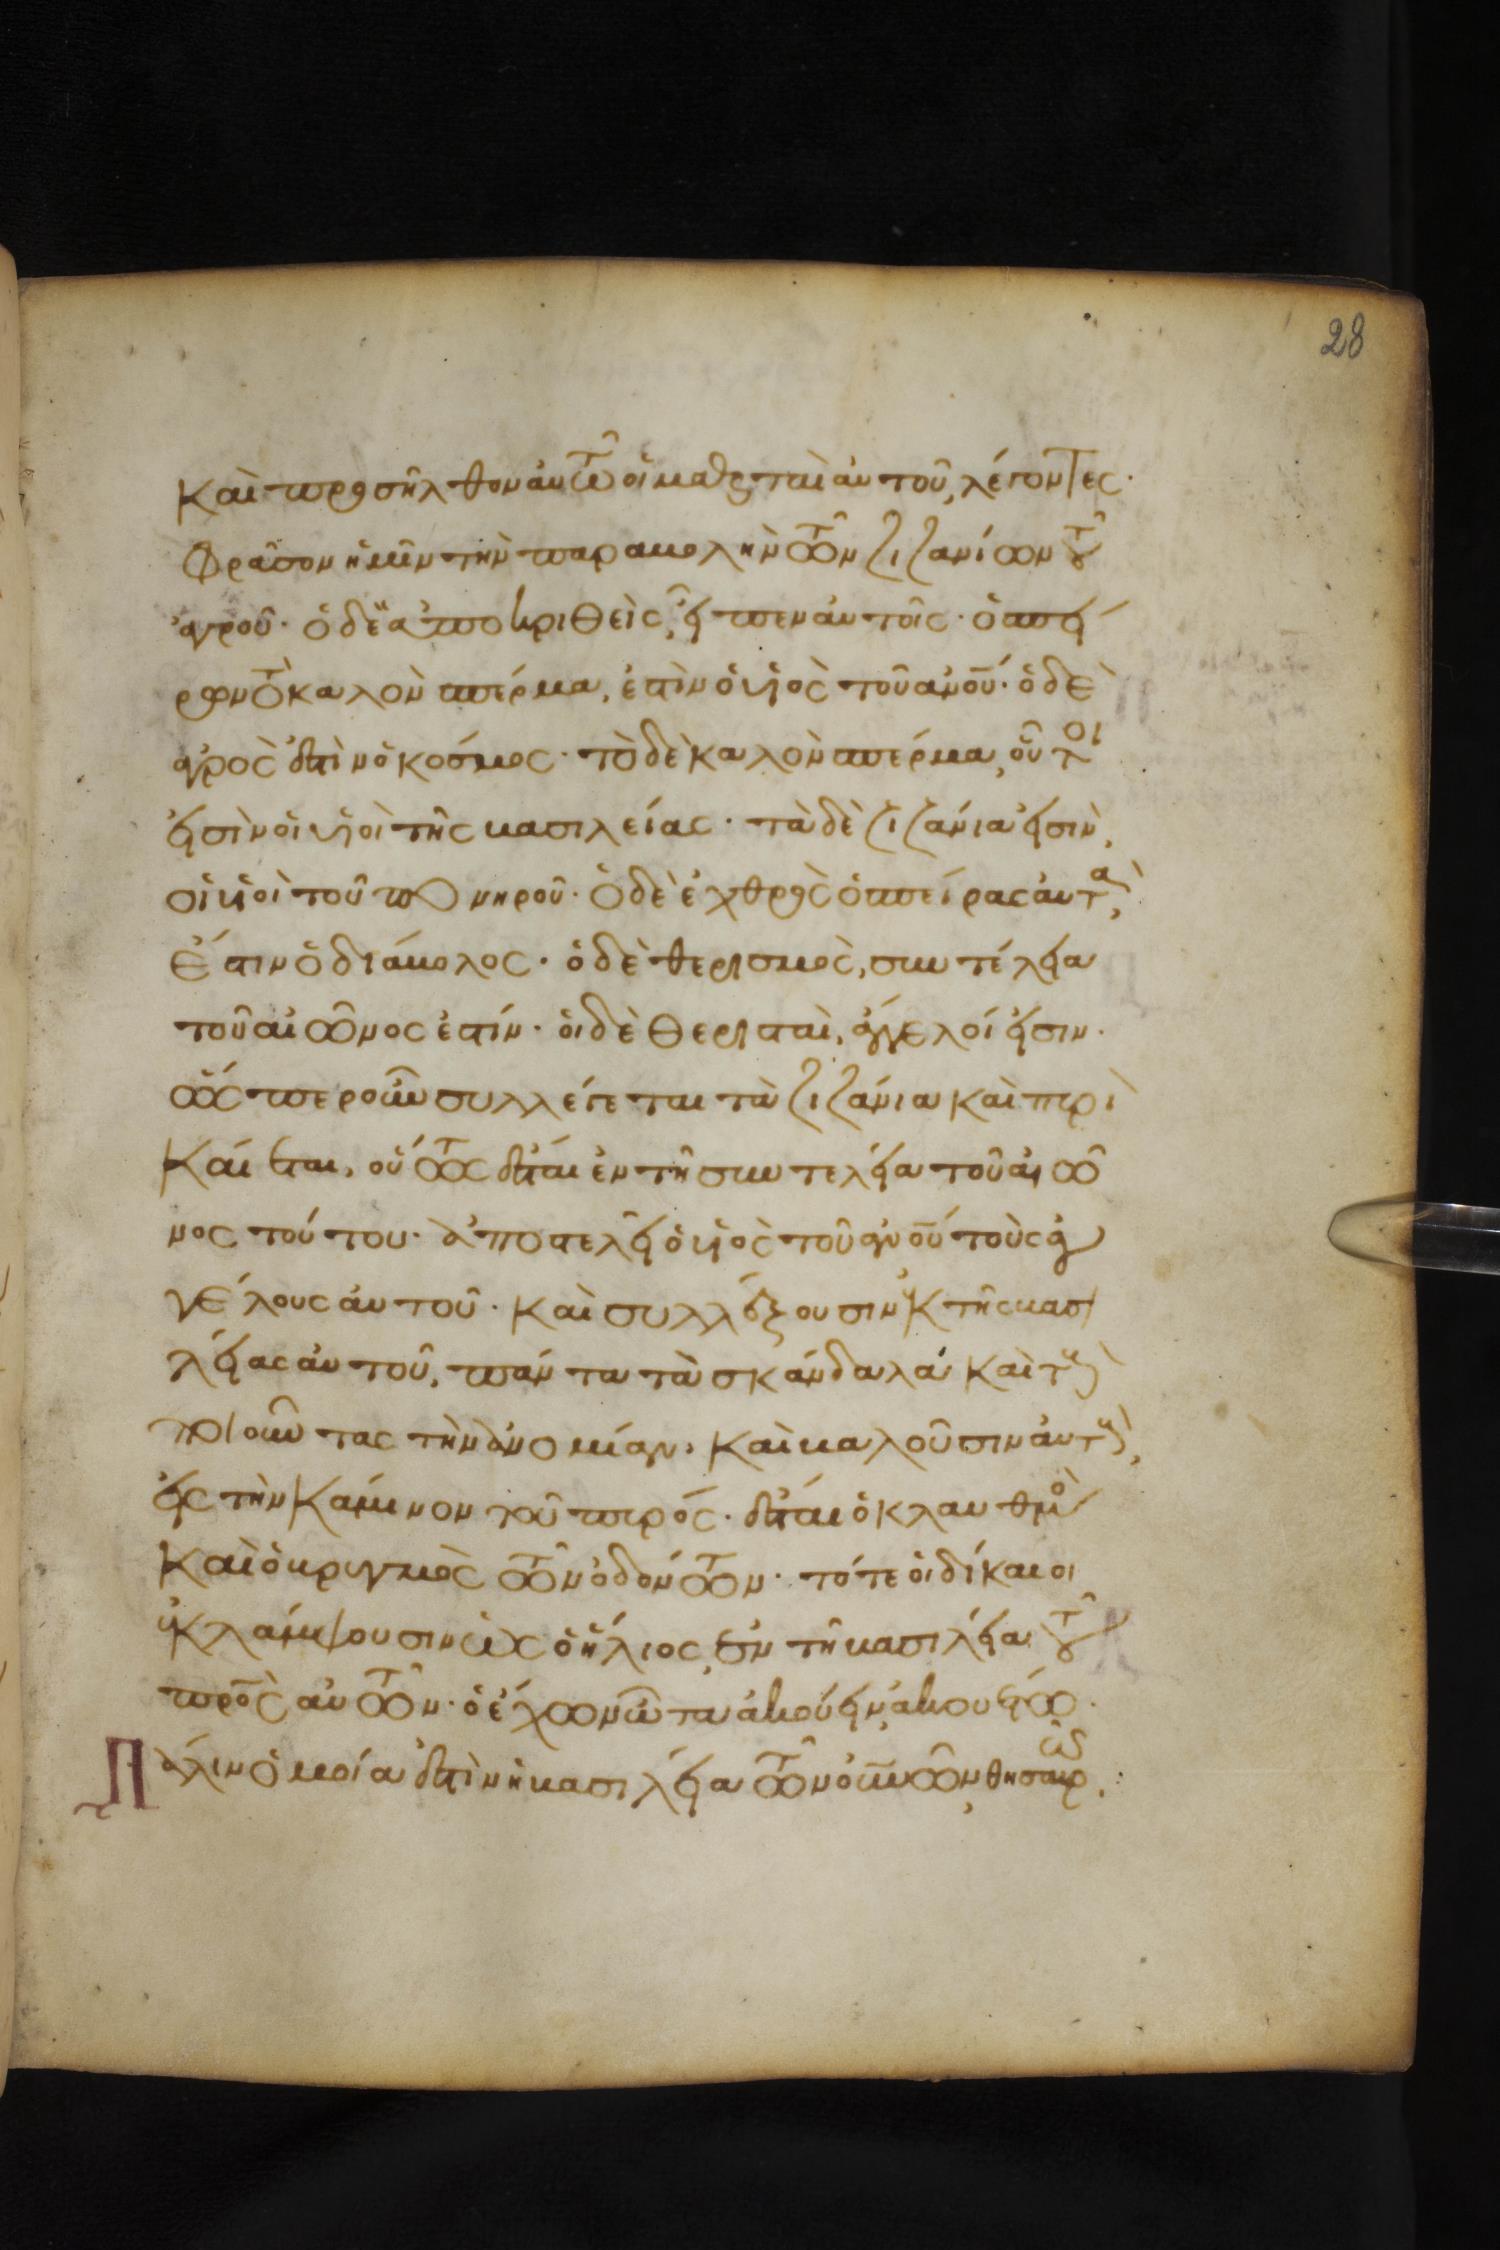 28
Καὶ προσῆλθον αὐτῶ οἱ μαθηταὶ αὐτοῦ, λέγοντες·
Φράσον ἡμῖν τὴν παραβολὴν τῶν ζιζανίων τοῦ
ἀγροῦ· ὁ δὲ ἀποκριθεὶς, εἶπεν αὐτοῖς· ὁ σπεί
ρων τὸ καλὸν σπέρμα, ἐστὶν ὁ υἱὸς τοῦ ἀνου· ὁ δὲ
ἀγρὸς ἐστὶν ὁ κόσμος· τὸ δὲ καλὸν σπέρμα, οὗτοι
εἰσὶν οἱ υἱοὶ τῆς βασιλείας· τὰ δὲ ζιζάνια εἰσὶν,
οἱ υἱοὶ τοῦ πονηροῦ· ὁ δὲ ἐχθρὸς ὁ σπείρας αὐτὰ,
ἐστιν ὁ διάβολος· ὁ δὲ θερισμὸς, συντέλεια
τοῦ αἰῶνος ἐστίν· οἱ δὲ θερισταὶ, ἄγγελοί εἰσιν·
ὥσπερ οὖν συλλέγεται τὰ ζιζάνια καὶ πυρὶ
καίεται, οὕτως ἔσται ἐν τῆ συντελεία τοῦ αἰῶ
νος τούτου· ἀποστελεῖ ὁ υἱὸς τοῦ ἀνου τοὺς ἀγ
γέλους αὐτοῦ· καὶ συλλέξουσιν ἐκ τῆς βασι
λείας αὐτοῦ, πάντα τὰ σκάνδαλα καὶ τοὺς
ποιοῦντας τὴν ἀνομίαν· καὶ βαλοῦσιν αὐτοὺς,
εἰς τὴν κάμινον τοῦ πυρός· ἔσται ὁ κλαυθμὸς
καὶ ὁ βρυγμὸς τῶν ὀδόντων· τότε οἱ δίκαιοι
ἐκλάμψουσιν ὡς ὁ ἥλιος, ἐν τῆ βασιλεία τοῦ
προς αὐτῶν· ὁ ἔχων ὦτα ἀκούειν, ἀκουέτω·
Πάλιν ὁμοία ἐστὶν ἡ βασιλεία τῶν οὐνῶν, θησαυρῶ